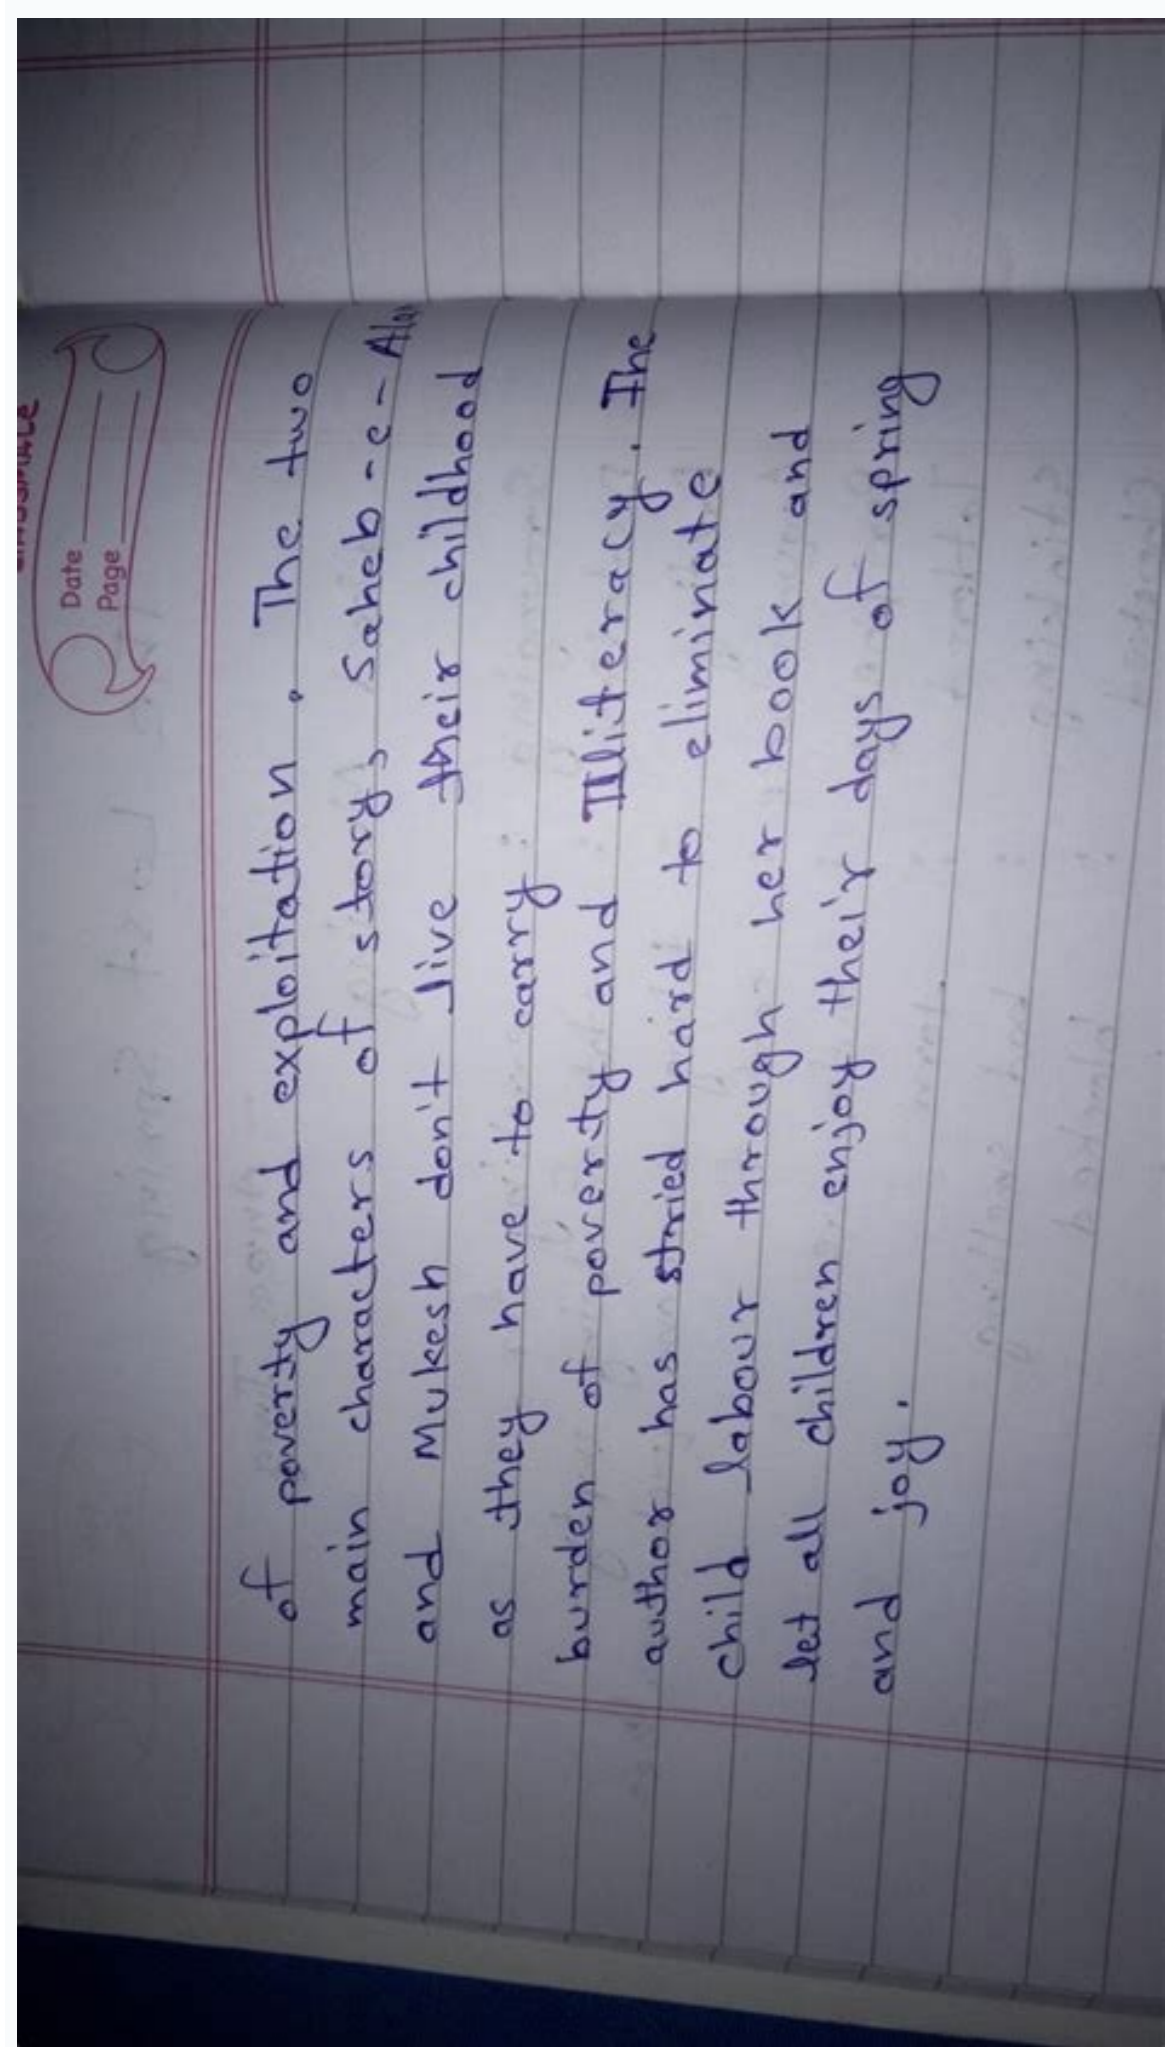 Date
Page
of poverty and exploitation. The two
main characters of story, Saheb-e-Ala
and Mukesh don't live their childhood
as they have to carry
burden of poverty and Illiteracy. The
author has stried hard to eliminate
child labour through her book and
let all children enjoy their days of spring
and joy.